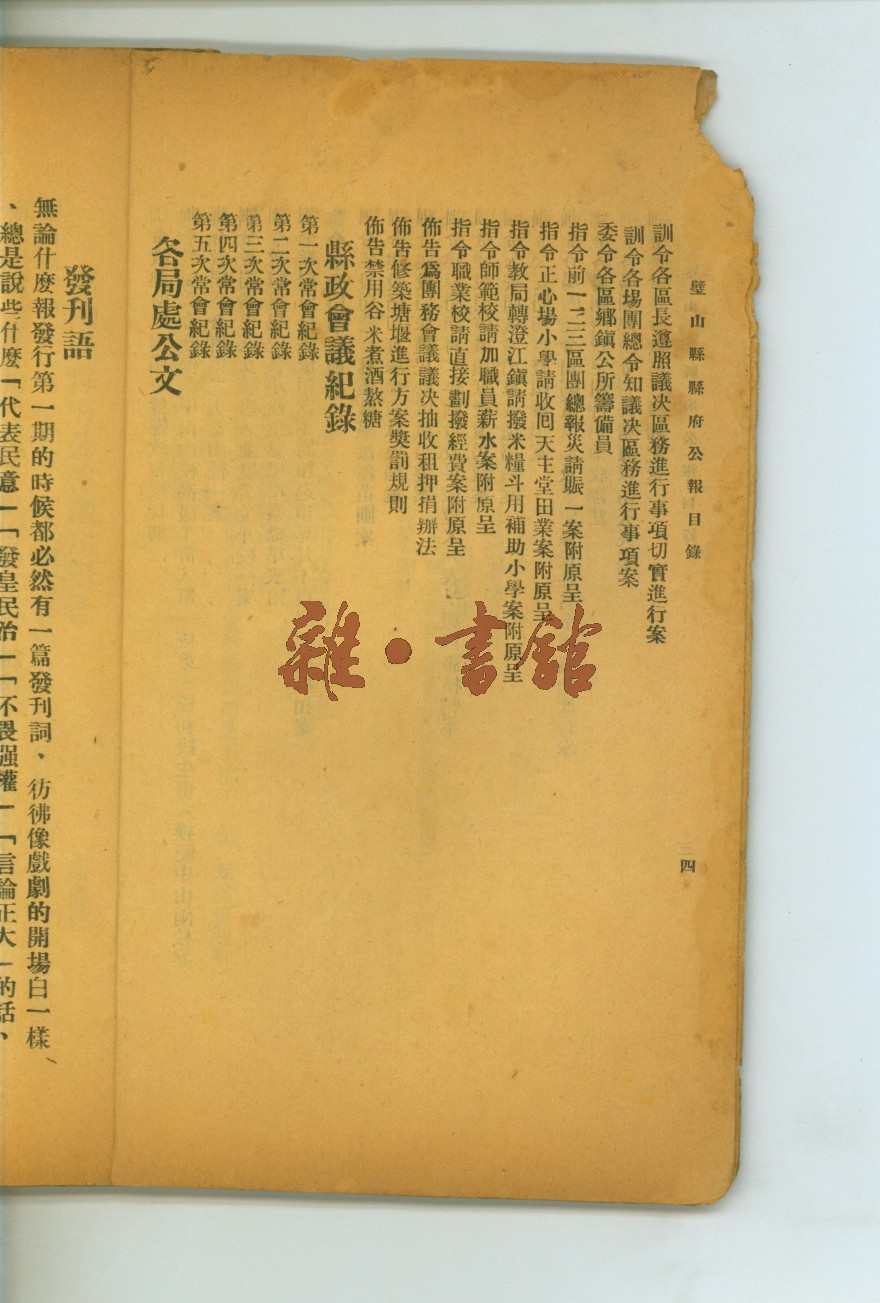 璧山縣縣府公報目錄
四
訓令各區長遵照議决區務進行事項切實進行案
訓令各場團總令知議决區務進行事項案
委令各區鄉鎭公所籌備員
指令前一二三區團總報災請賑一案附原呈
指令正心場小學請收囘天主堂田業案附原呈
指令教局轉澄江鎭請撥米糧斗用補助小學案附原呈
指令師範校請加職員薪水案附原呈
指令職業校請直接劃撥經費案附原呈
佈告爲團務會議議决抽收租押捐辦法
佈告修築塘堰進行方案獎罰規則
佈告禁用谷米煮酒熬糖
縣政會議紀錄
第一次常會紀錄
第二次常會紀錄
第三次常會紀錄
第四次常會紀錄
第五次常會紀錄
各局處公文
發刊語
無論什麽報發行第一期的時候都必然有一篇發刊詞、彷彿像戲劇的開場白一樣
、總是說些什麽「代表民意」「發皇民治」「不畏强權」「言論正大」的話、
雜·書館